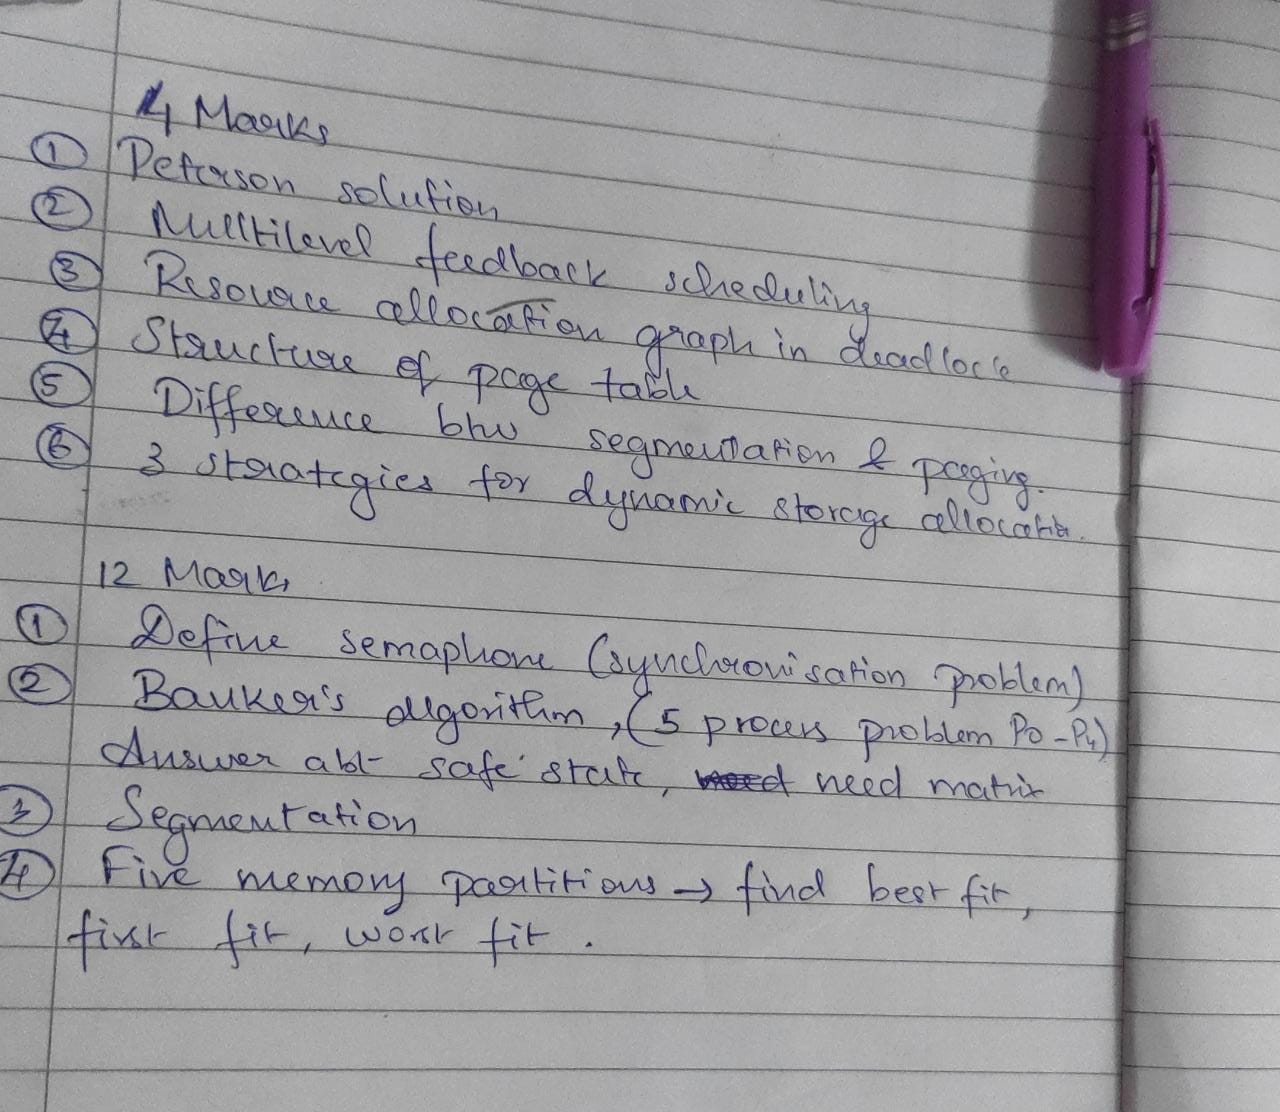 4 Marks
① Peterson solution
② Multilevel feedback scheduling
③ Resource allocation graph in deadlock
④ Structure of page table
⑤ Difference btw segmentation & paging.
⑥ 3 strategies for dynamic storage allocation.
12 Marks
① Define semaphore (synchronisation problem)
② Banker's algorithm, (5 process problem P0-P4)
Answer abt safe state, need matrix
③ Segmentation
④ Five memory partitions → find best fit,
first fit, worst fit.